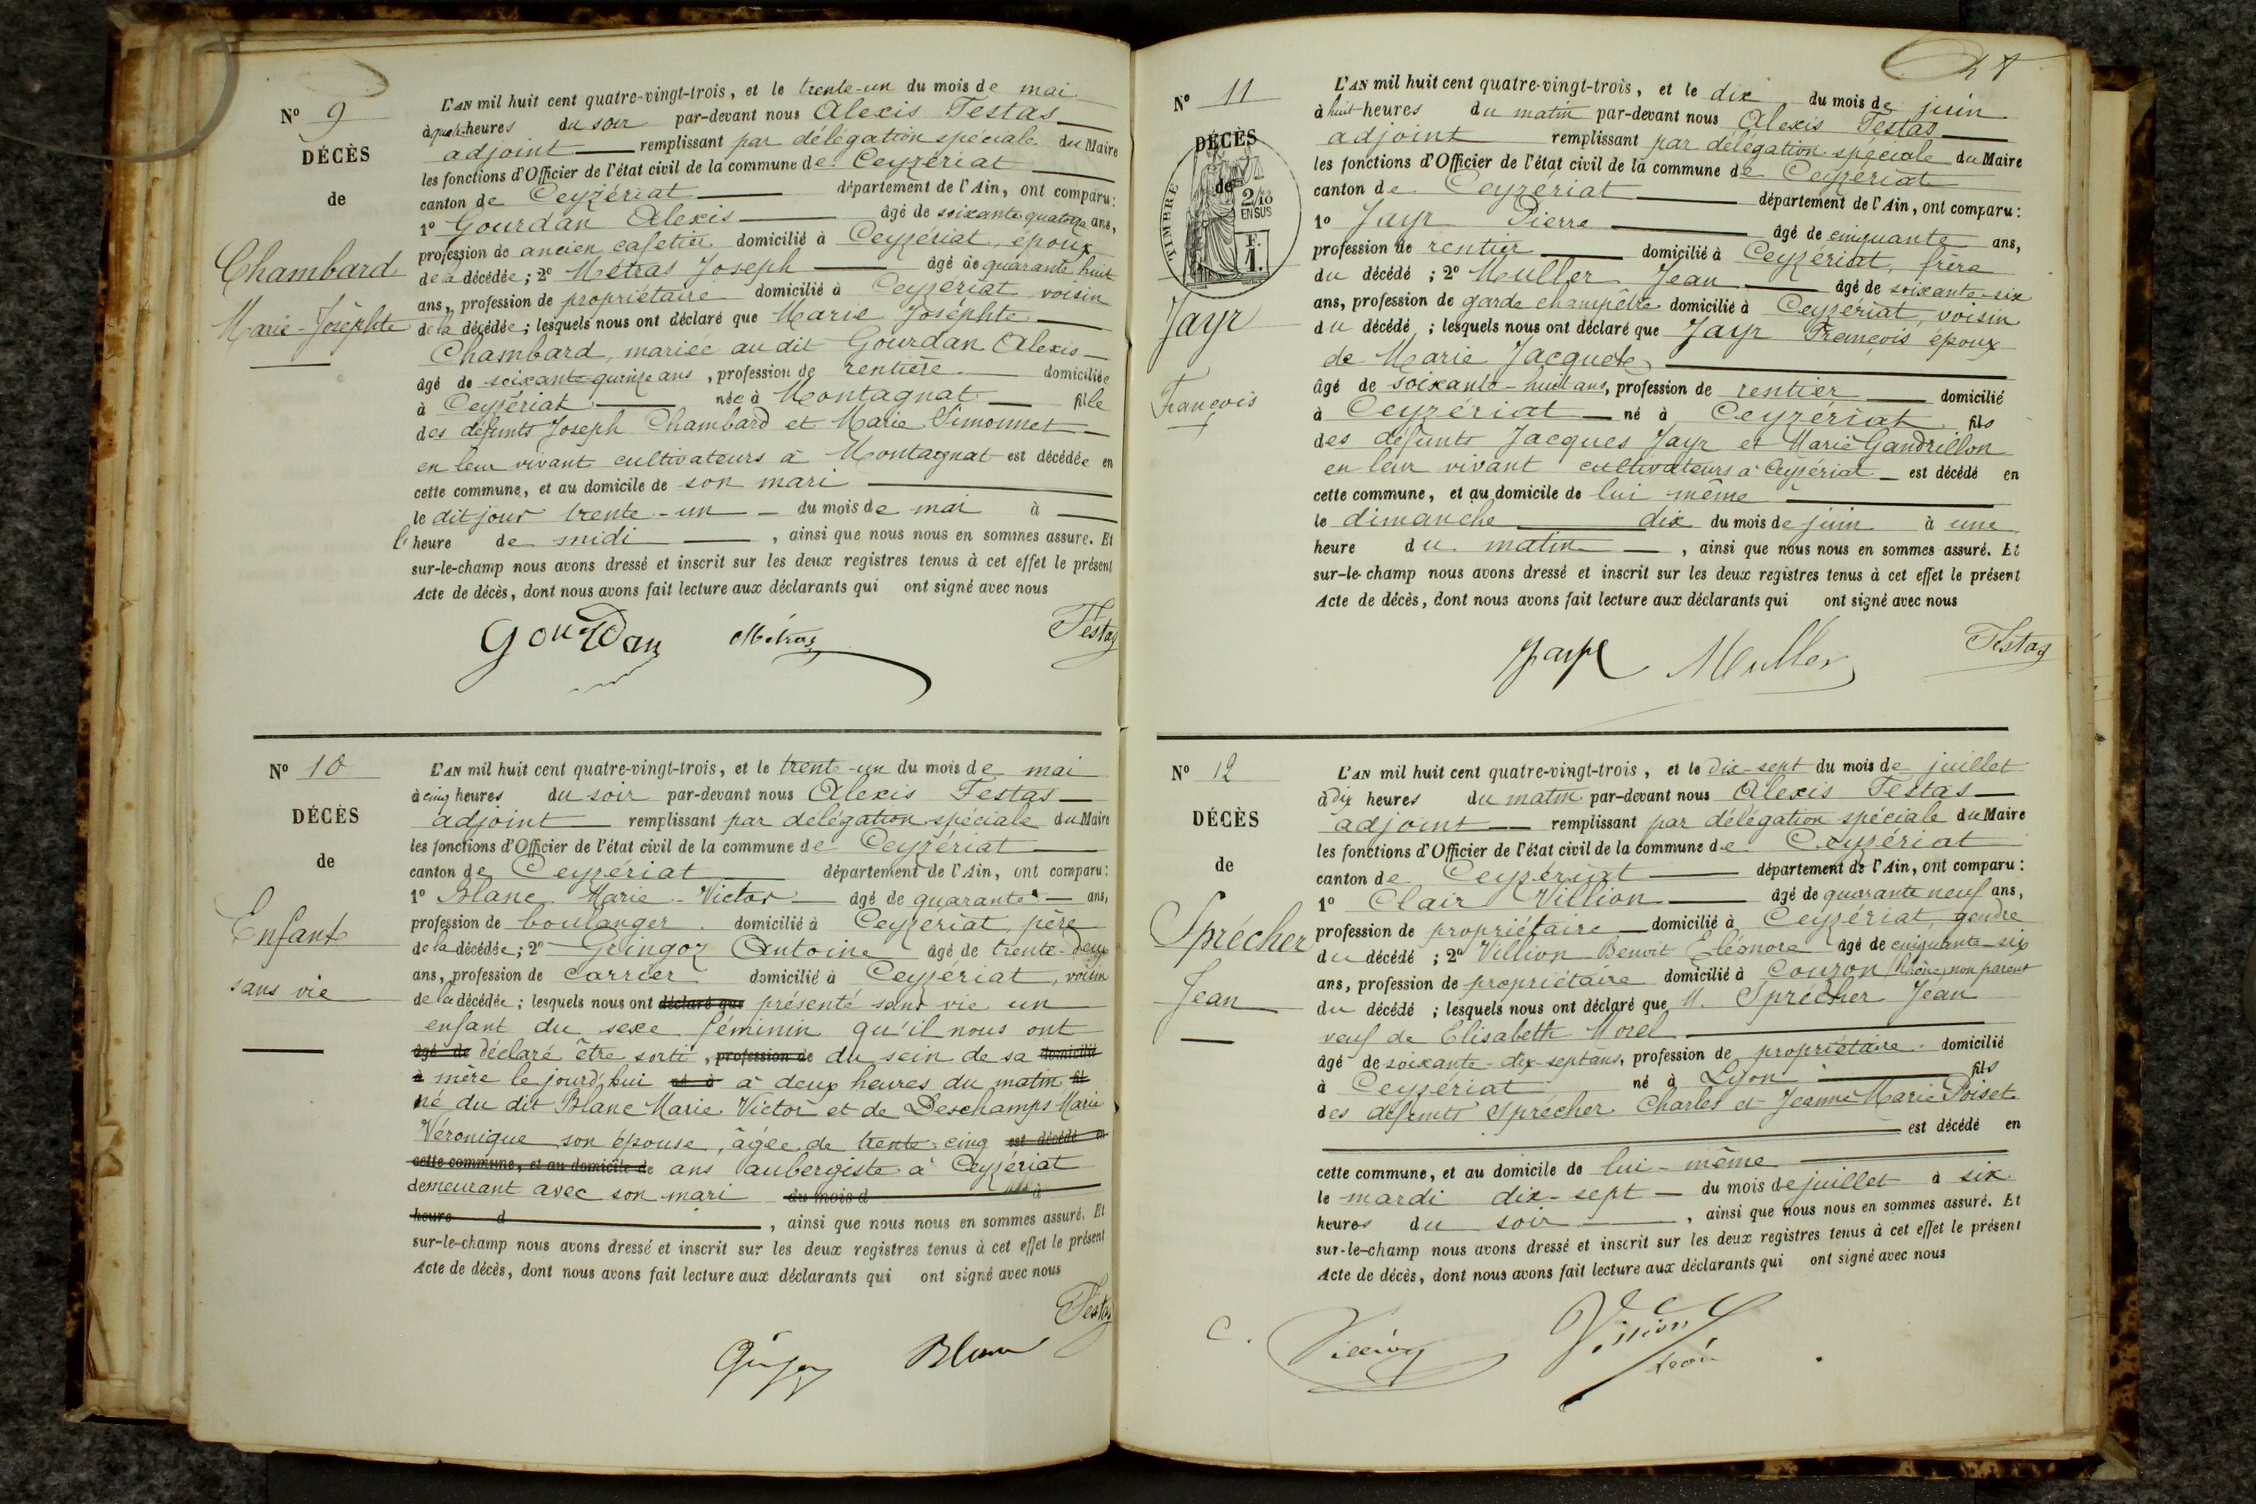 N° 9
DÉCÈS
de
Chambard
Marie-Joséphte
L'AN mil huit cent quatre-vingt-trois, et le trente-un du mois de mai
à quatre heures du soir par-devant nous Alexis Testas
adjoint remplissant par délégation spéciale du Maire
les fonctions d'Officier de l'état civil de la commune de Ceyzériat
canton de Ceyzériat département de l'Ain, ont comparu:
1° Gourdan Alexis âgé de soixante quatorze ans,
profession de ancien cafetier domicilié à Ceyzériat, époux
de la décédée; 2° Métras Joseph âgé de quarante huit
ans, profession de propriétaire domicilié à Ceyzériat voisin
de la décédée; lesquels nous ont déclaré que Marie Joséphte
Chambard, mariée au dit Gourdan Alexis
âgé de soixante quinze ans, profession de rentière domiciliée
à Ceyzériat née à Montagnat fille
des défunts Joseph Chambard et Marie Simonnet
en leur vivant cultivateurs à Montagnat est décédée en
cette commune, et au domicile de son mari
le dit jour trente-un du mois de mai à
l'heure de midi, ainsi que nous nous en sommes assuré. Et
sur-le-champ nous avons dressé et inscrit sur les deux registres tenus à cet effet le présent
Acte de décès, dont nous avons fait lecture aux déclarants qui ont signé avec nous
Gourdan Métras Testas
N° 10
DÉCÈS
de
Enfant
sans vie
L'AN mil huit cent quatre-vingt-trois, et le trente-un du mois de mai
à cinq heures du soir par-devant nous Alexis Testas
adjoint remplissant par délégation spéciale du Maire
les fonctions d'Officier de l'état civil de la commune de Ceyzériat
canton de Ceyzériat département de l'Ain, ont comparu:
1° Blanc Marie-Victor âgé de quarante ans,
profession de boulanger domicilié à Ceyzériat, père
de la décédée; 2° Gringoz Antoine âgé de trente-deux
ans, profession de carrier domicilié à Ceyzériat, voisin
de la décédée; lesquels nous ont déclaré que présenté sans vie un
enfant du sexe féminin qu'il nous ont
âgé de déclaré être sorti, profession de du sein de sa domicilié
à mère le jourd'hui né à à deux heures du matin fil
né du dit Blanc Marie Victor et de Deschamps Marie
Véronique son épouse, âgée de trente-cinq est décédé en
cette commune, et au domicile de ans aubergiste à Ceyzériat
demeurant avec son mari du mois d à
heure d, ainsi que nous nous en sommes assuré. Et
sur-le-champ nous avons dressé et inscrit sur les deux registres tenus à cet effet le présent
Acte de décès, dont nous avons fait lecture aux déclarants qui ont signé avec nous
Testas
Blanc
N° 11
DÉCÈS
de
TIMBRE
2/10
EN SUS
F.
1.
Jayr
François
L'AN mil huit cent quatre-vingt-trois, et le dix du mois de juin
à huit heures du matin par-devant nous Alexis Testas
adjoint remplissant par délégation spéciale du Maire
les fonctions d'Officier de l'état civil de la commune de Ceyzériat
canton de Ceyzériat département de l'Ain, ont comparu:
1° Jayr Pierre âgé de cinquante ans,
profession de rentier domicilié à Ceyzériat, frère
du décédé; 2° Muller Jean âgé de soixante-six
ans, profession de garde champêtre domicilié à Ceyzériat, voisin
du décédé; lesquels nous ont déclaré que Jayr François époux
de Marie Jacquet
âgé de soixante-huit ans, profession de rentier domicilié
à Ceyzériat né à Ceyzériat fils
des défunts Jacques Jayr et Marie Gandrillon
en leur vivant cultivateurs à Ceyzériat est décédé en
cette commune, et au domicile de lui même
le dimanche dix du mois de juin à une
heure du matin, ainsi que nous nous en sommes assuré. Et
sur-le-champ nous avons dressé et inscrit sur les deux registres tenus à cet effet le présent
Acte de décès, dont nous avons fait lecture aux déclarants qui ont signé avec nous
Jayr Muller Testas
N° 12
DÉCÈS
de
Sprécher
Jean
L'AN mil huit cent quatre-vingt-trois, et le dix-sept du mois de juillet
à dix heures du matin par-devant nous Alexis Testas
adjoint remplissant par délégation spéciale du Maire
les fonctions d'Officier de l'état civil de la commune de Ceyzériat
canton de Ceyzériat département de l'Ain, ont comparu:
1° Clair Villion âgé de quarante neuf ans,
profession de propriétaire domicilié à Ceyzériat, gendre
du décédé; 2° Villion Benoit Eléonore âgé de cinquante-six
ans, profession de propriétaire domicilié à Couzon (Rhône) non parent
du décédé; lesquels nous ont déclaré que M. Sprécher Jean
veuf de Elisabeth Morel
âgé de soixante-dix-sept ans, profession de propriétaire domicilié
à Ceyzériat né à Lyon fils
des défunts Sprécher Charles et Jeanne Marie Poiset
est décédé en
cette commune, et au domicile de lui-même
le mardi dix-sept du mois de juillet à six
heures du soir, ainsi que nous nous en sommes assuré. Et
sur-le-champ nous avons dressé et inscrit sur les deux registres tenus à cet effet le présent
Acte de décès, dont nous avons fait lecture aux déclarants qui ont signé avec nous
C. Villion Villion